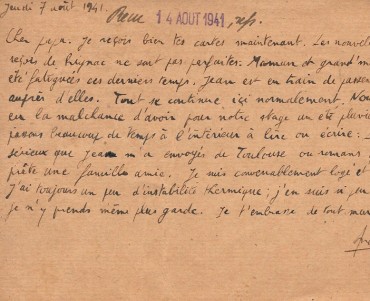 Jeudi 7 août 1941.
Reçu 14 AOUT 1941, rép.
Cher papa. Je reçois bien tes cartes maintenant. Les nouvel
reçues de Prignac ne sont pas parfaites. Maman et grand'm
été fatiguées ces derniers temps. Jean est en train de passer
auprès d'elles. Tout se continue ici normalement. Nou
eu la malchance d'avoir pour notre stage un été pluvi
passons beaucoup de temps à l'intérieur à lire ou écrire :
sérieux que Jean m'a envoyés de Toulouse ou romans
prête une famille amie. Je suis convenablement logé et
J'ai toujours un peu d'instabilité thermique ; j'en suis si
je n'y prends même plus garde. Je t'embrasse de tout mon